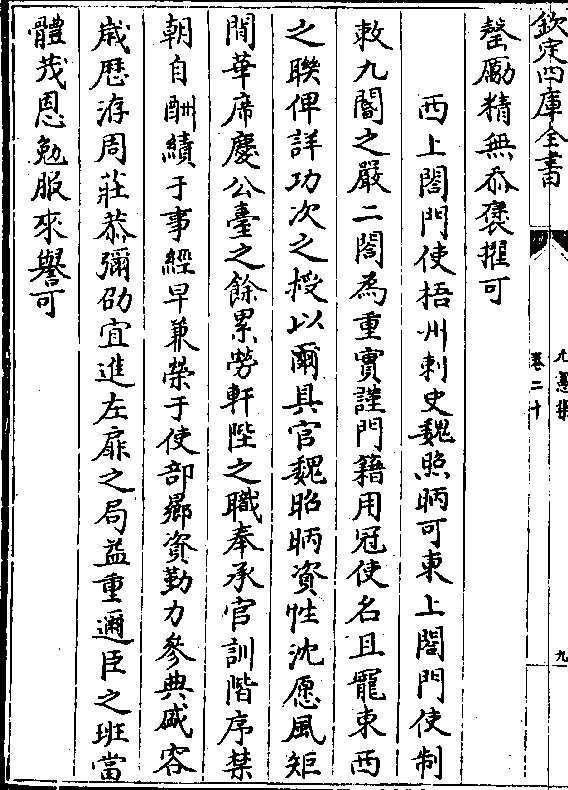 欽定四庫全書
罄勵精無忝褒擢可
西上閤門使梧州刺史魏昭昞可東上閤門使制
敕九闈之嚴二閤為重實謹門籍用冠使名且寵東西
之聯俾詳功次之授以爾具官魏昭昞資性沈愿風矩
閒華席慶公臺之餘累勞軒陛之職奉承官訓階序禁
朝自酬績于事經早兼榮于使部鄉資勤力參典威容
歲歷洊周莊恭彌劭宜進左扉之局益重邇臣之班當
體茂恩勉服來譽可
元憲集
卷二十
九